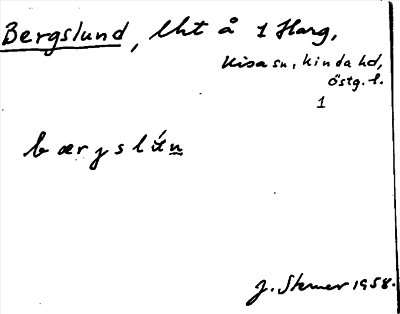 Bergslund, lht å 1 Harg,
Kisa sn, Kinda hd,
östg. l.
1
bærgslún̲
J. Sterner 1958.